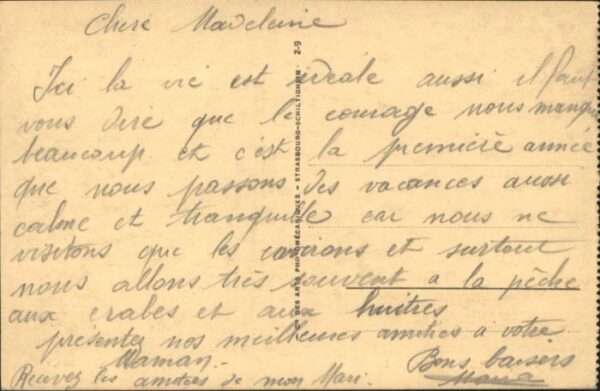 Chere Madeleine
Ici la vie est ideale aussi il faut
vous dire que le courage nous manque
beaucoup et c'est la première année
que nous passons des vacances aussi
calme et tranquille car nous ne
visitons que les environs et surtout
nous allons très souvent a la pêche
aux crabes et aux huitres
présentez nos meilleures amities a votre
Maman. Bons baisers
Recevez les amities de mon Mari.
DES ARTS PHOTOMÉCANIQUES - STRASBOURG-SCHILTIGHEIM 2-9